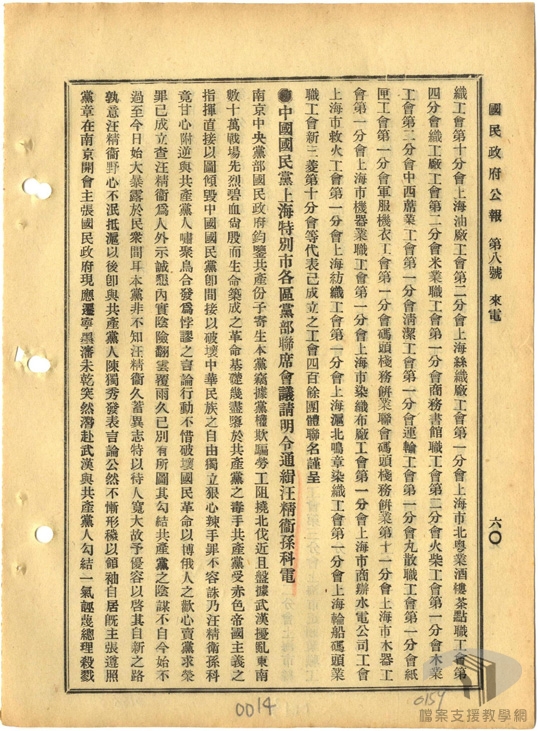 國民政府公報　第八號　來電
六〇
織工會第十分會上海油廠工會第二分會上海絲織廠工會第一分會上海市北粵業酒樓茶點職工會第
四分會織工廠工會第二分會米業職工會第一分會商務書館職工會第二分會火柴工會第一分會木業
工會第二分會中西蓆業工會第一分會淸潔工會第一分會運輪工會第一分會九散職工會第一分會紙
匣工會第一分會軍服機衣工會第一分會碼頭棧務餅業聯會碼頭棧務餅業第十一分會上海市木器工
會第一分會上海市機器業職工會第一分會上海市染織布廠工會第一分會上海市商辦水電公司工會
上海市救火工會第一分會上海紡織工會第一分會上海滬北鳴章染織工會第一分會上海輪船碼頭業
職工會新三菱第十分會等代表已成立之工會四百餘團體聯名謹呈
●中國國民黨上海特別市各區黨部聯席會議請明令通緝汪精衞孫科電
南京中央黨部國民政府鈞鑒共產份子寄生本黨竊據黨權欺騙勞工阻撓北伐近且盤據武漢擾亂東南
數十萬戰場先烈碧血與股而生命築成之革命基礎幾盡落於共產黨之毒手共產黨受赤色帝國主義之
指揮直接以圖傾毀中國國民黨卽間接以破壞中華民族之自由獨立狠心辣手罪不容誅乃汪精衞孫科
竟甘心附逆與共產黨人嘯聚烏合發爲悖謬之言論行動不惜破壞國民革命以博俄人之歡心賣黨求榮
罪已成立查汪精衞爲人外示誠懇內實陰險翻雲覆雨久已別有所圖其勾結共產黨之陰謀不自今始不
過至今日始大暴露於民衆間耳本黨非不知汪精衞久蓄異志特以待人寬大故予優容以啓其自新之路
孰意汪精衞野心不泯抵滬以後卽與共產黨人陳獨秀發表言論公然不慚形穢以領袖自居旣主張遵照
黨章在南京開會主張國民政府現應遷寧墨瀋未乾突然潛赴武漢與共產黨人勾結一氣誣衊總理殺戮
0014
0154
檔案支援教學網